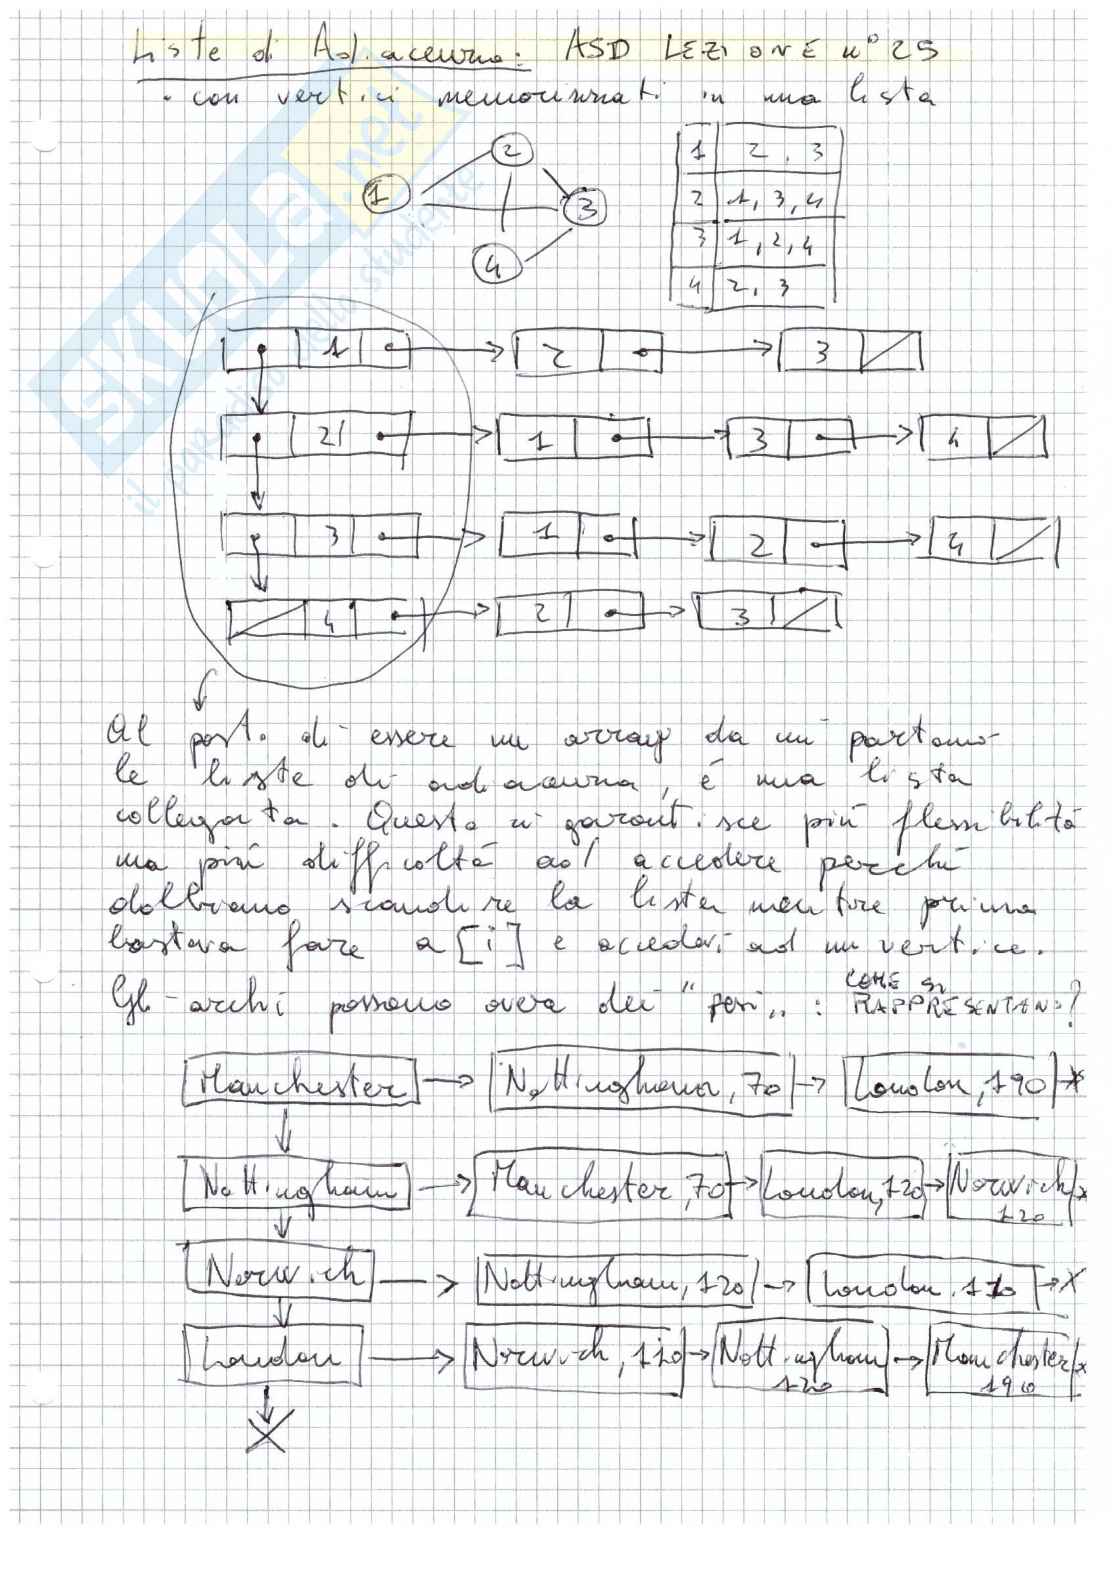 Liste di Adiacenza: ASD LEZIONE n° 25
• con vertici memorizzati in una lista
1
2
3
4
1 2, 3
2 1, 3, 4
3 1, 2, 4
4 2, 3
1 2 3
2 1 3 4
3 1 2 4
4 2 3
Al posto di essere un array da cui partono
le liste di adiacenza, é una lista
collegata. Questo ci garantisce più flessibilità
ma più difficoltà ad accedere perché
dobbiamo scandire la lista mentre prima
bastava fare a[i] e accedevi ad un vertice.
Gli archi possono avere dei "pesi": COME SI RAPPRESENTANO?
Manchester Nottingham, 70 London, 190
Nottingham Manchester, 70 London, 120 Norwich 120
Norwich Nottingham, 120 London, 110
London Norwich, 110 Nottingham 120 Manchester 190
SKUOLA.net
il paradiso dello studente